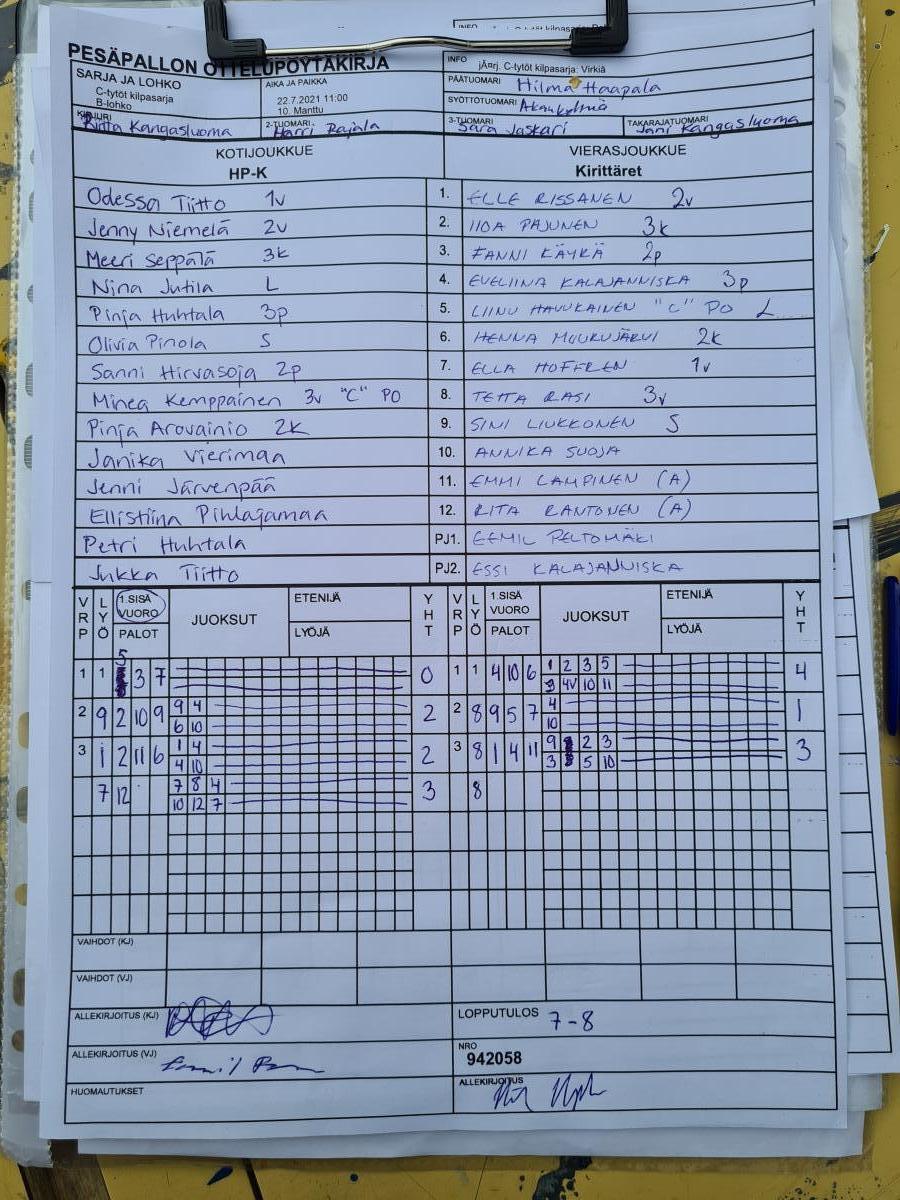 PESÄPALLON OTTELUPÖYTÄKIRJA
SARJA JA LOHKO
C-tytöt kilpasarja
B-lohko
AIKA JA PAIKKA
22.7.2021 11:00
10. Manttu
INFO
jÃ¤rj. C-tytöt kilpasarja: Virkiä
PÄÄTUOMARI Hilma Haapala
SYÖTTÖTUOMARI
KIRJURI Kangasluoma
2-TUOMARI Harri Rajala
3-TUOMARI Sara Jaskari
TAKARAJATUOMARI Jani Kangasluoma
KOTIJOUKKUE VIERASJOUKKUE
HP-K Kirittäret
Odessa Tiitto 1v 1. ELLE RISSANEN 2v
Jenny Niemelä 2v 2. IIDA PAJUNEN 3k
Meeri Seppälä 3k 3. FANNI KÄYKÄ 2p
Nina Jutila L 4. EVELIINA KALAJANNISKA 3p
Pinja Huhtala 3p 5. LIINU HAUKKAINEN "C" PO L
Olivia Pinola S 6. HENNA MUURUJÄRVI 2k
Sanni Hirvasoja 2p 7. ELLA HOFFREN 1v
Minea Kemppainen 3v "C" PO 8. TETTA RASI 3v
Pinja Arovainio 2K 9. SINI LIUKKONEN S
Janika Vierimaa 10. ANNIKA SUOJA
Jenni Järvenpää 11. EMMI LAMPINEN (A)
Ellistiina Pihlajamaa 12. RITA RANTONEN (A)
Petri Huhtala PJ1. EEMIL PELTOMÄKI
Jukka Tiitto PJ2. ESSI KALAJANNISKA
VRP LYÖ 1.SISÄ VUORO PALOT JUOKSUT ETENIJÄ LYÖJÄ YHT VRP LYÖ 1.SISÄ VUORO PALOT JUOKSUT ETENIJÄ LYÖJÄ YHT
1 1 5 3 7 0 1 1 4 10 6 1 2 3 5 4
9 4V 10 11
2 9 2 10 9 9 4 2 2 8 9 5 7 4 1
6 10 10
3 1 2 11 6 1 4 2 3 8 1 4 11 9 2 3 3
4 10 3 5 10
7 12 7 8 4 3 8
10 12 7
VAIHDOT (KJ)
VAIHDOT (VJ)
ALLEKIRJOITUS (KJ)
LOPPUTULOS 7-8
ALLEKIRJOITUS (VJ)
NRO
942058
HUOMAUTUKSET
ALLEKIRJOITUS